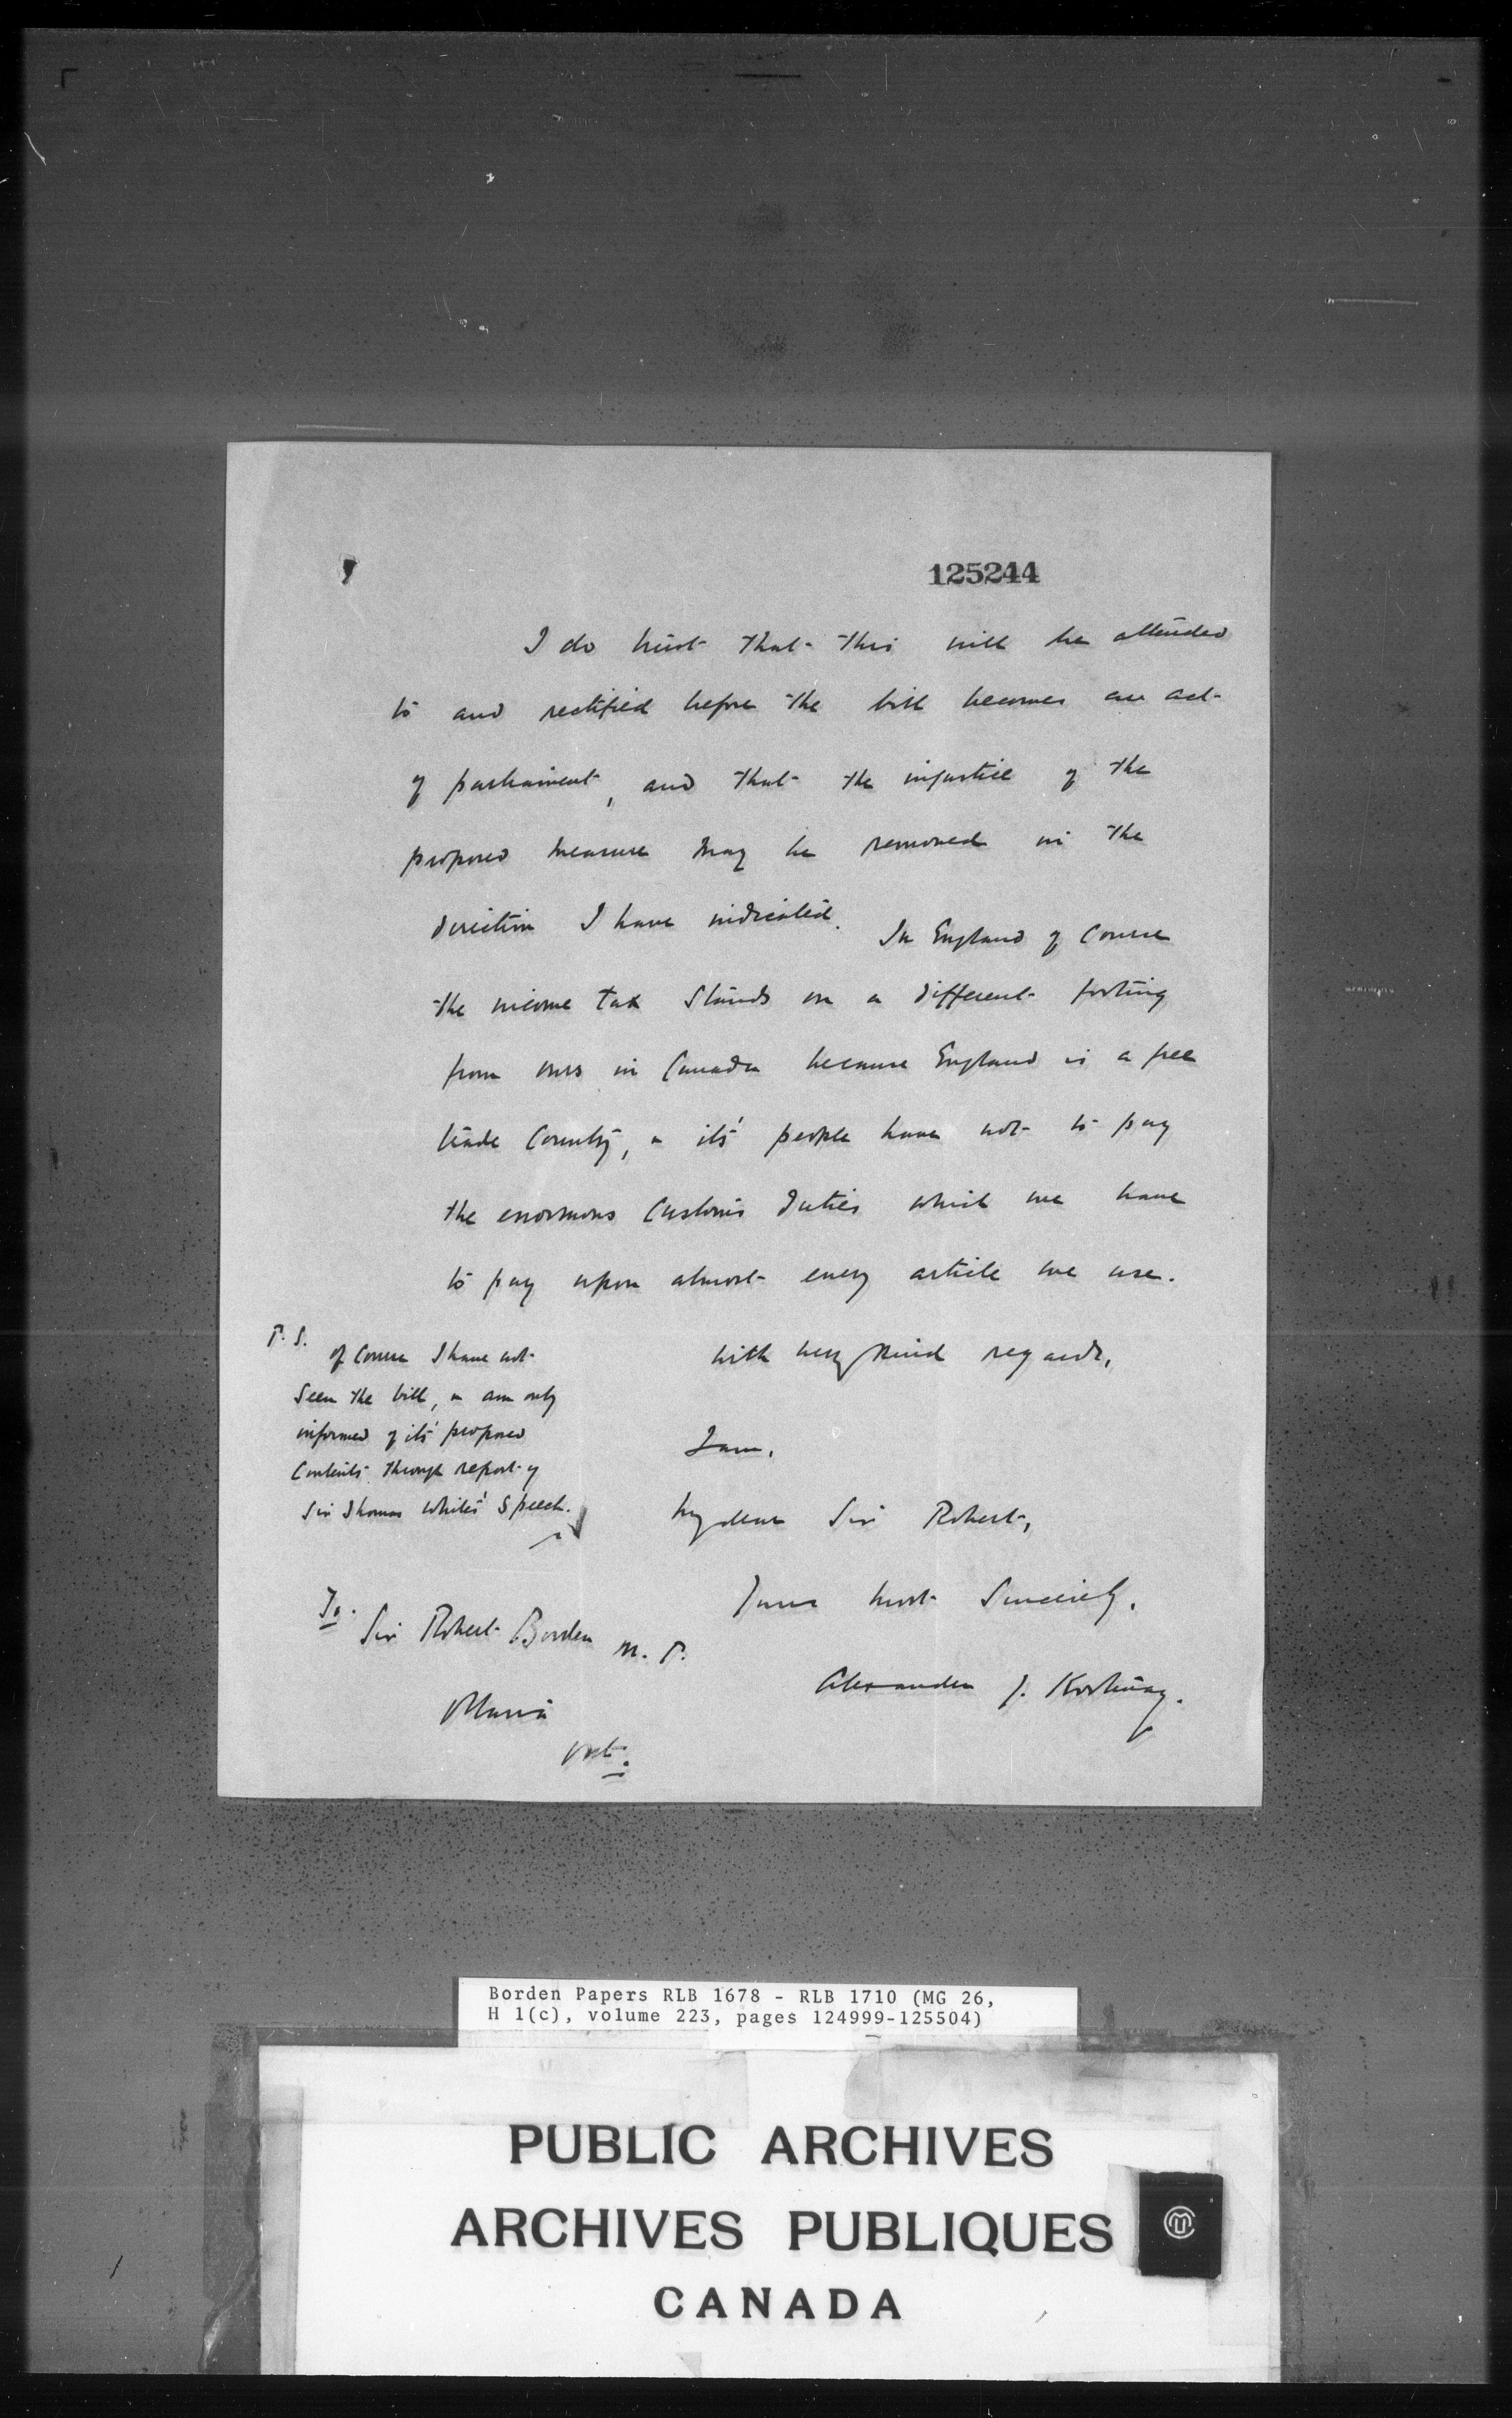 125244
I do trust that this will be attended
to and rectified before the bill becomes an act
of parliament, and that the injustice of the
proposed measure may be removed in the
direction I have indicated. In England of course
the income tax stands on a different footing
from ours in Canada because England is a free
trade country, & its' people have not to pay
the enormous Customs duties which we have
to pay upon almost every article we use.
With very kind regards,
I am,
My dear Sir Robert,
Yours most Sincerely,
Alexander J.
P.S.
of course I have not
seen the bill, & am only
informed of its' proposed
Contents through report of
Sir Thomas Whites' Speech.
To.
Sir Robert Borden M.P.
Ottawa
Ont.
Borden Papers RLB 1678 - RLB 1710 (MG 26,
H 1(c), volume 223, pages 124999-125504)
PUBLIC ARCHIVES
ARCHIVES PUBLIQUES
CANADA